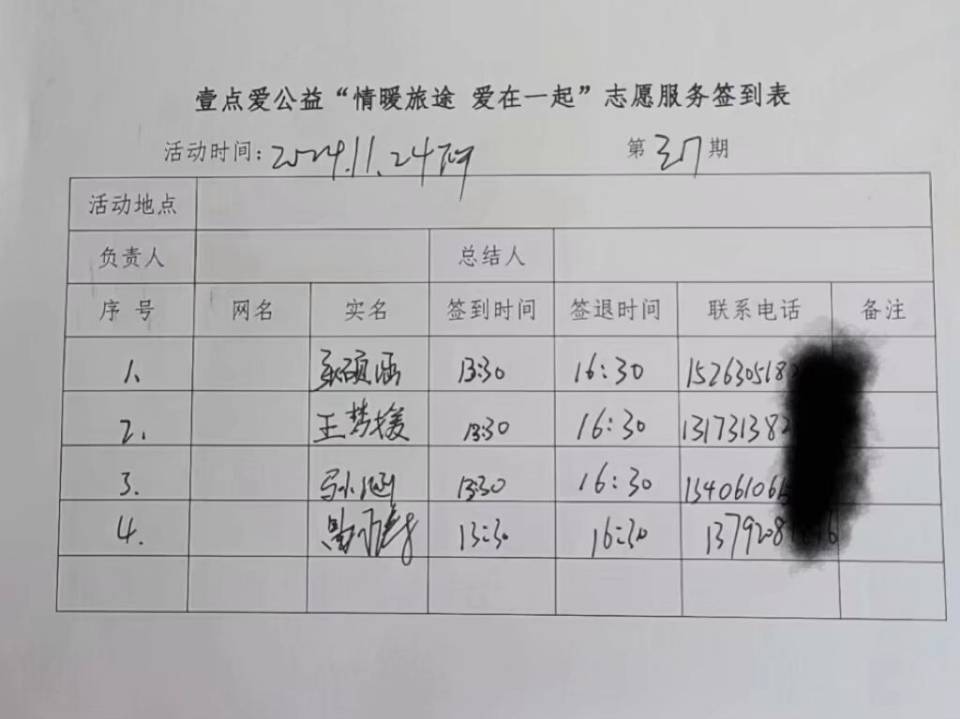 壹点爱公益“情暖旅途 爱在一起”志愿服务签到表
活动时间：2024.11.24 第 期
活动地点
负责人 总结人
序号 网名 实名 签到时间 签退时间 联系电话 备注
1. 13:30 16:30 15263051
2. 王梦媛 13:30 16:30 131731382
3. 孙涵 13:30 16:30 13406106
4. 13:30 16:30 1379208